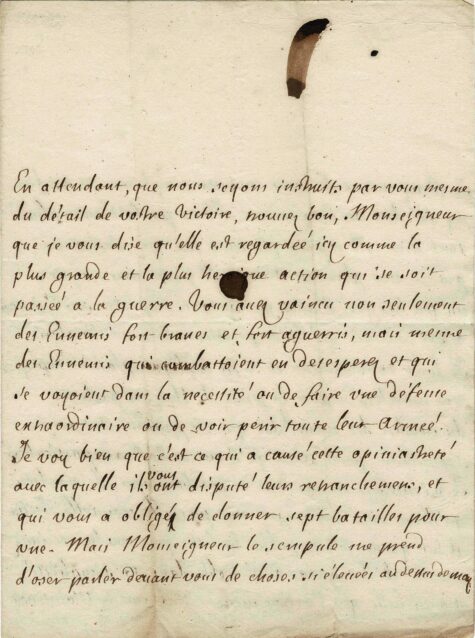 En attendant, que nous soyons instruits par vous mesme
du détail de vostre victoire, trouvez bon, Monseigneur
que je vous dise qu'elle est regardeé icy comme la
plus grande et la plus heroique action qui se soit
passeé a la guerre. Vous avez vaincu non seulement
des Ennemis fort braves et fort aguerris, mais mesme
des Ennemis qui combattoient en desesperez et qui
se voyoient dans la necessité ou de faire vne défense
extraordinaire ou de voir perir toute leur Armeé.
Je voy bien que c'est ce qui a causé cette opiniastreté
avec laquelle ils vous ont disputé leurs retranchemens, et
qui vous a obligé de donner sept batailles pour
vne. Mais Monseigneur le scrupule me prend
d'oser parler devant vous de choses si éleveés au dessus de moy